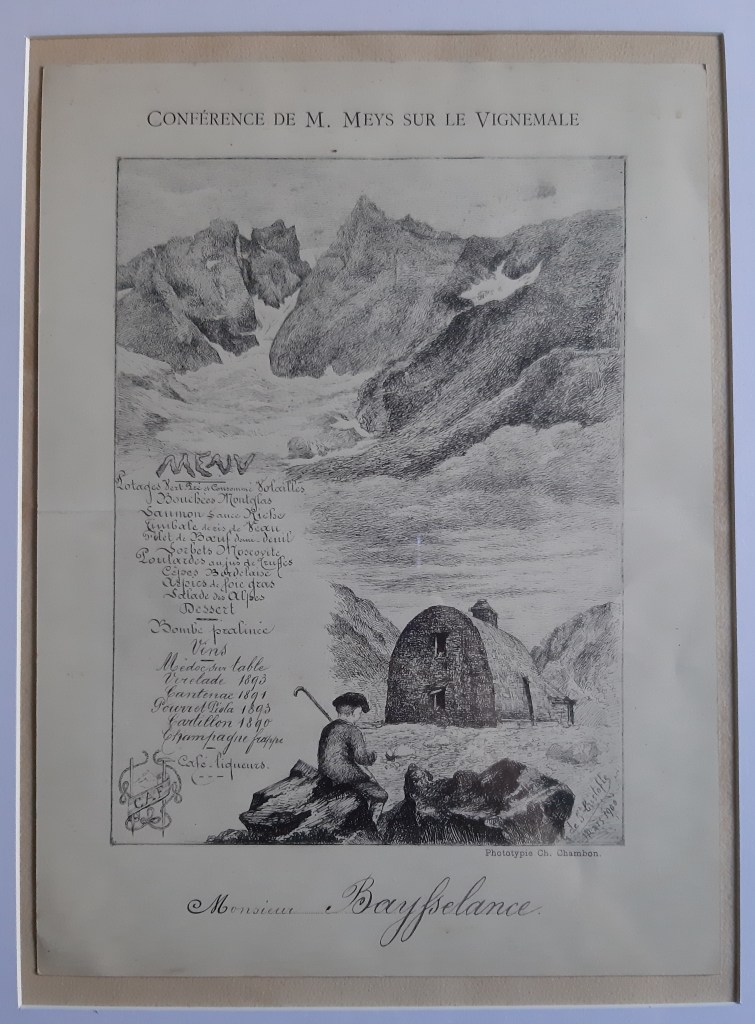 CONFÉRENCE DE M. MEYS SUR LE VIGNEMALE
MENU
Potages Volailles
Bouchées Montglas
Saumon Sauce Riche
Timbale de ris de Veau
Filet de Bœuf demi-deuil
Sorbets Moscovite
Poulardes au jus de Truffes
Cèpes Bordelaise
Aspics de foie gras
Salade des Alpes
Dessert
Bombe pralinée
Vins
Médoc sur table
Verelade 1893
Cantenac 1891
1893
Cardillon 1890
Champagne frappé
Café-liqueurs.
C.A.F.
Mars 1900
Phototypie Ch. Chambon.
Monsieur Baysselance.